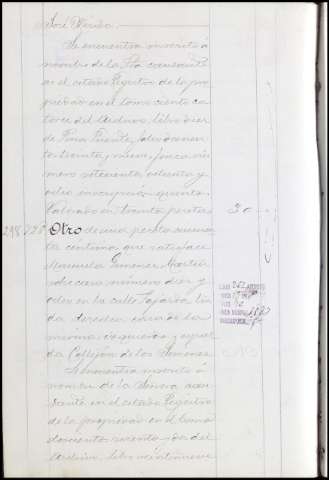 José Pérula.
Se encuentra inscrito á
nombre de la Sra causante
en el citado Registro de la pro
piedad en el tomo ciento ca
torce del Archivo, libro diez
de Pino Puente, folio doscien
to treinta y nueve, finca nú
mero setecientos ochenta y
ocho inscripción quinta.
Valorado en treinta pesetas 30
298 Otro de una peseta cincuen
ta centimos que satisface
Manuela Gimenez Martin
sobre casa número diez y
ocho en la calle Tajarja lin
da derecha casa de la
misma izquierda y espal
da Callejón de los Gimenez
Se encuentra inscrito á
nombre de la Señora cau
sante en el citado Registro
de la propiedad en el tomo
doscientos sesenta y dos del
Archivo, libro veintinueve